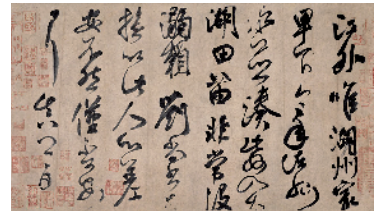 江外唯湖州最
卑下今年諸州
水並湊此州入太
湖田苗非常沒
溺賴劉尚書与
拯以此人心差
安不然僅不可安
耳真卿白